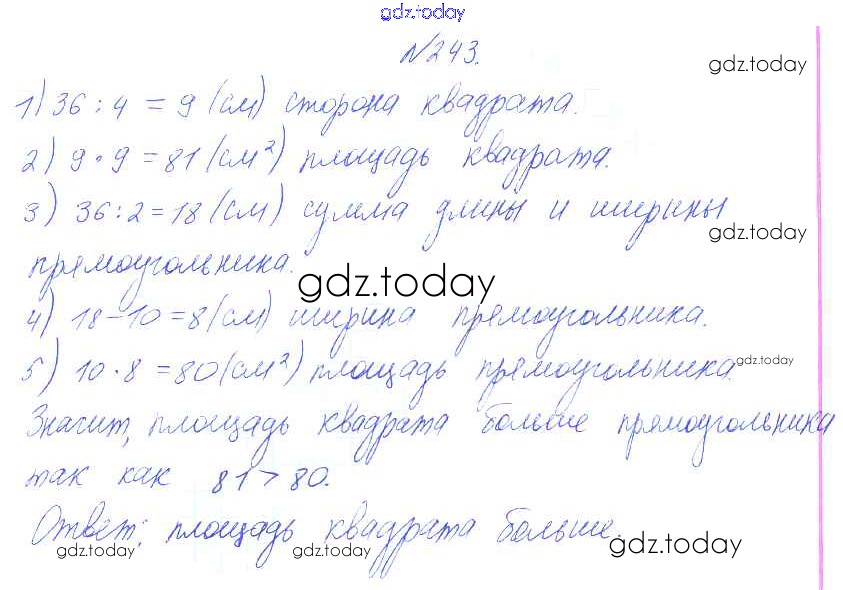 gdz.today
№243.
gdz.today
1) 36 : 4 = 9 (см) сторона квадрата.
2) 9 · 9 = 81 (см²) площадь квадрата.
3) 36 : 2 = 18 (см) сумма длины и ширины
gdz.today
прямоугольника.
gdz.today
4) 18 - 10 = 8 (см) ширина прямоугольника.
5) 10 · 8 = 80 (см²) площадь прямоугольника.
gdz.today
Значит, площадь квадрата больше прямоугольника
так как 81 > 80.
Ответ: площадь квадрата больше.
gdz.today gdz.today gdz.today